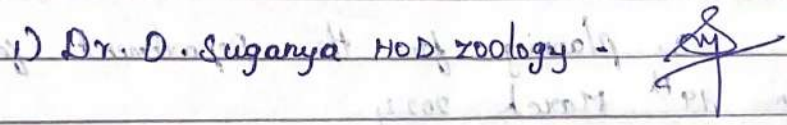 1) Dr. D. Suganya HOD, zoology -